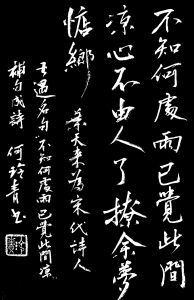 不知何處雨已覺此間
凉心不由人了撩余夢
惦鄉
桑天来為宋代詩人
王遇名句不知何處雨已覺此間凉
補白成詩 何玲青书